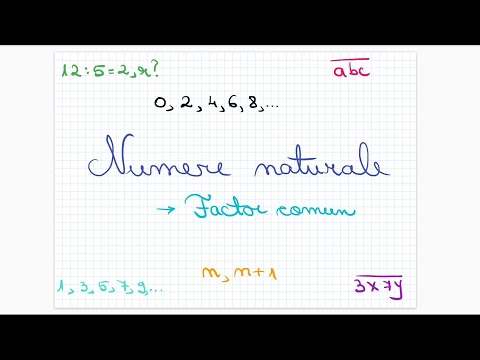 12:5=2,r?
a̅b̅c̅
0, 2, 4, 6, 8, ...
Numere naturale
→ Factor comun
n, n+1
1, 3, 5, 7, 9, ...
3̅x̅7̅y̅